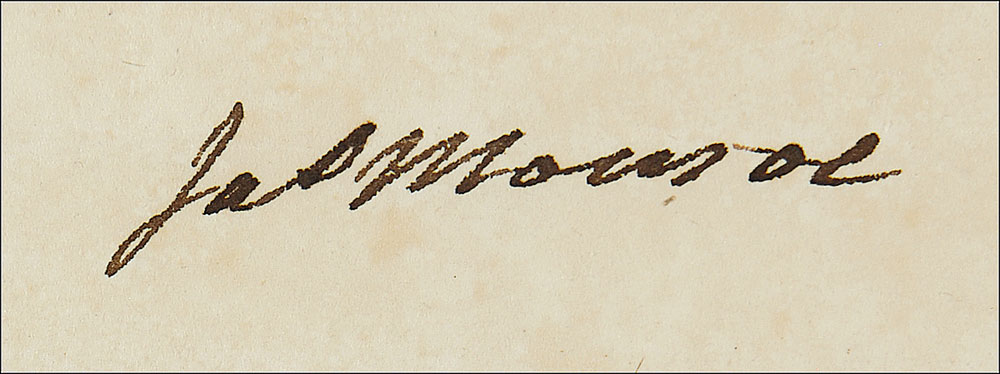 Jas Monroe